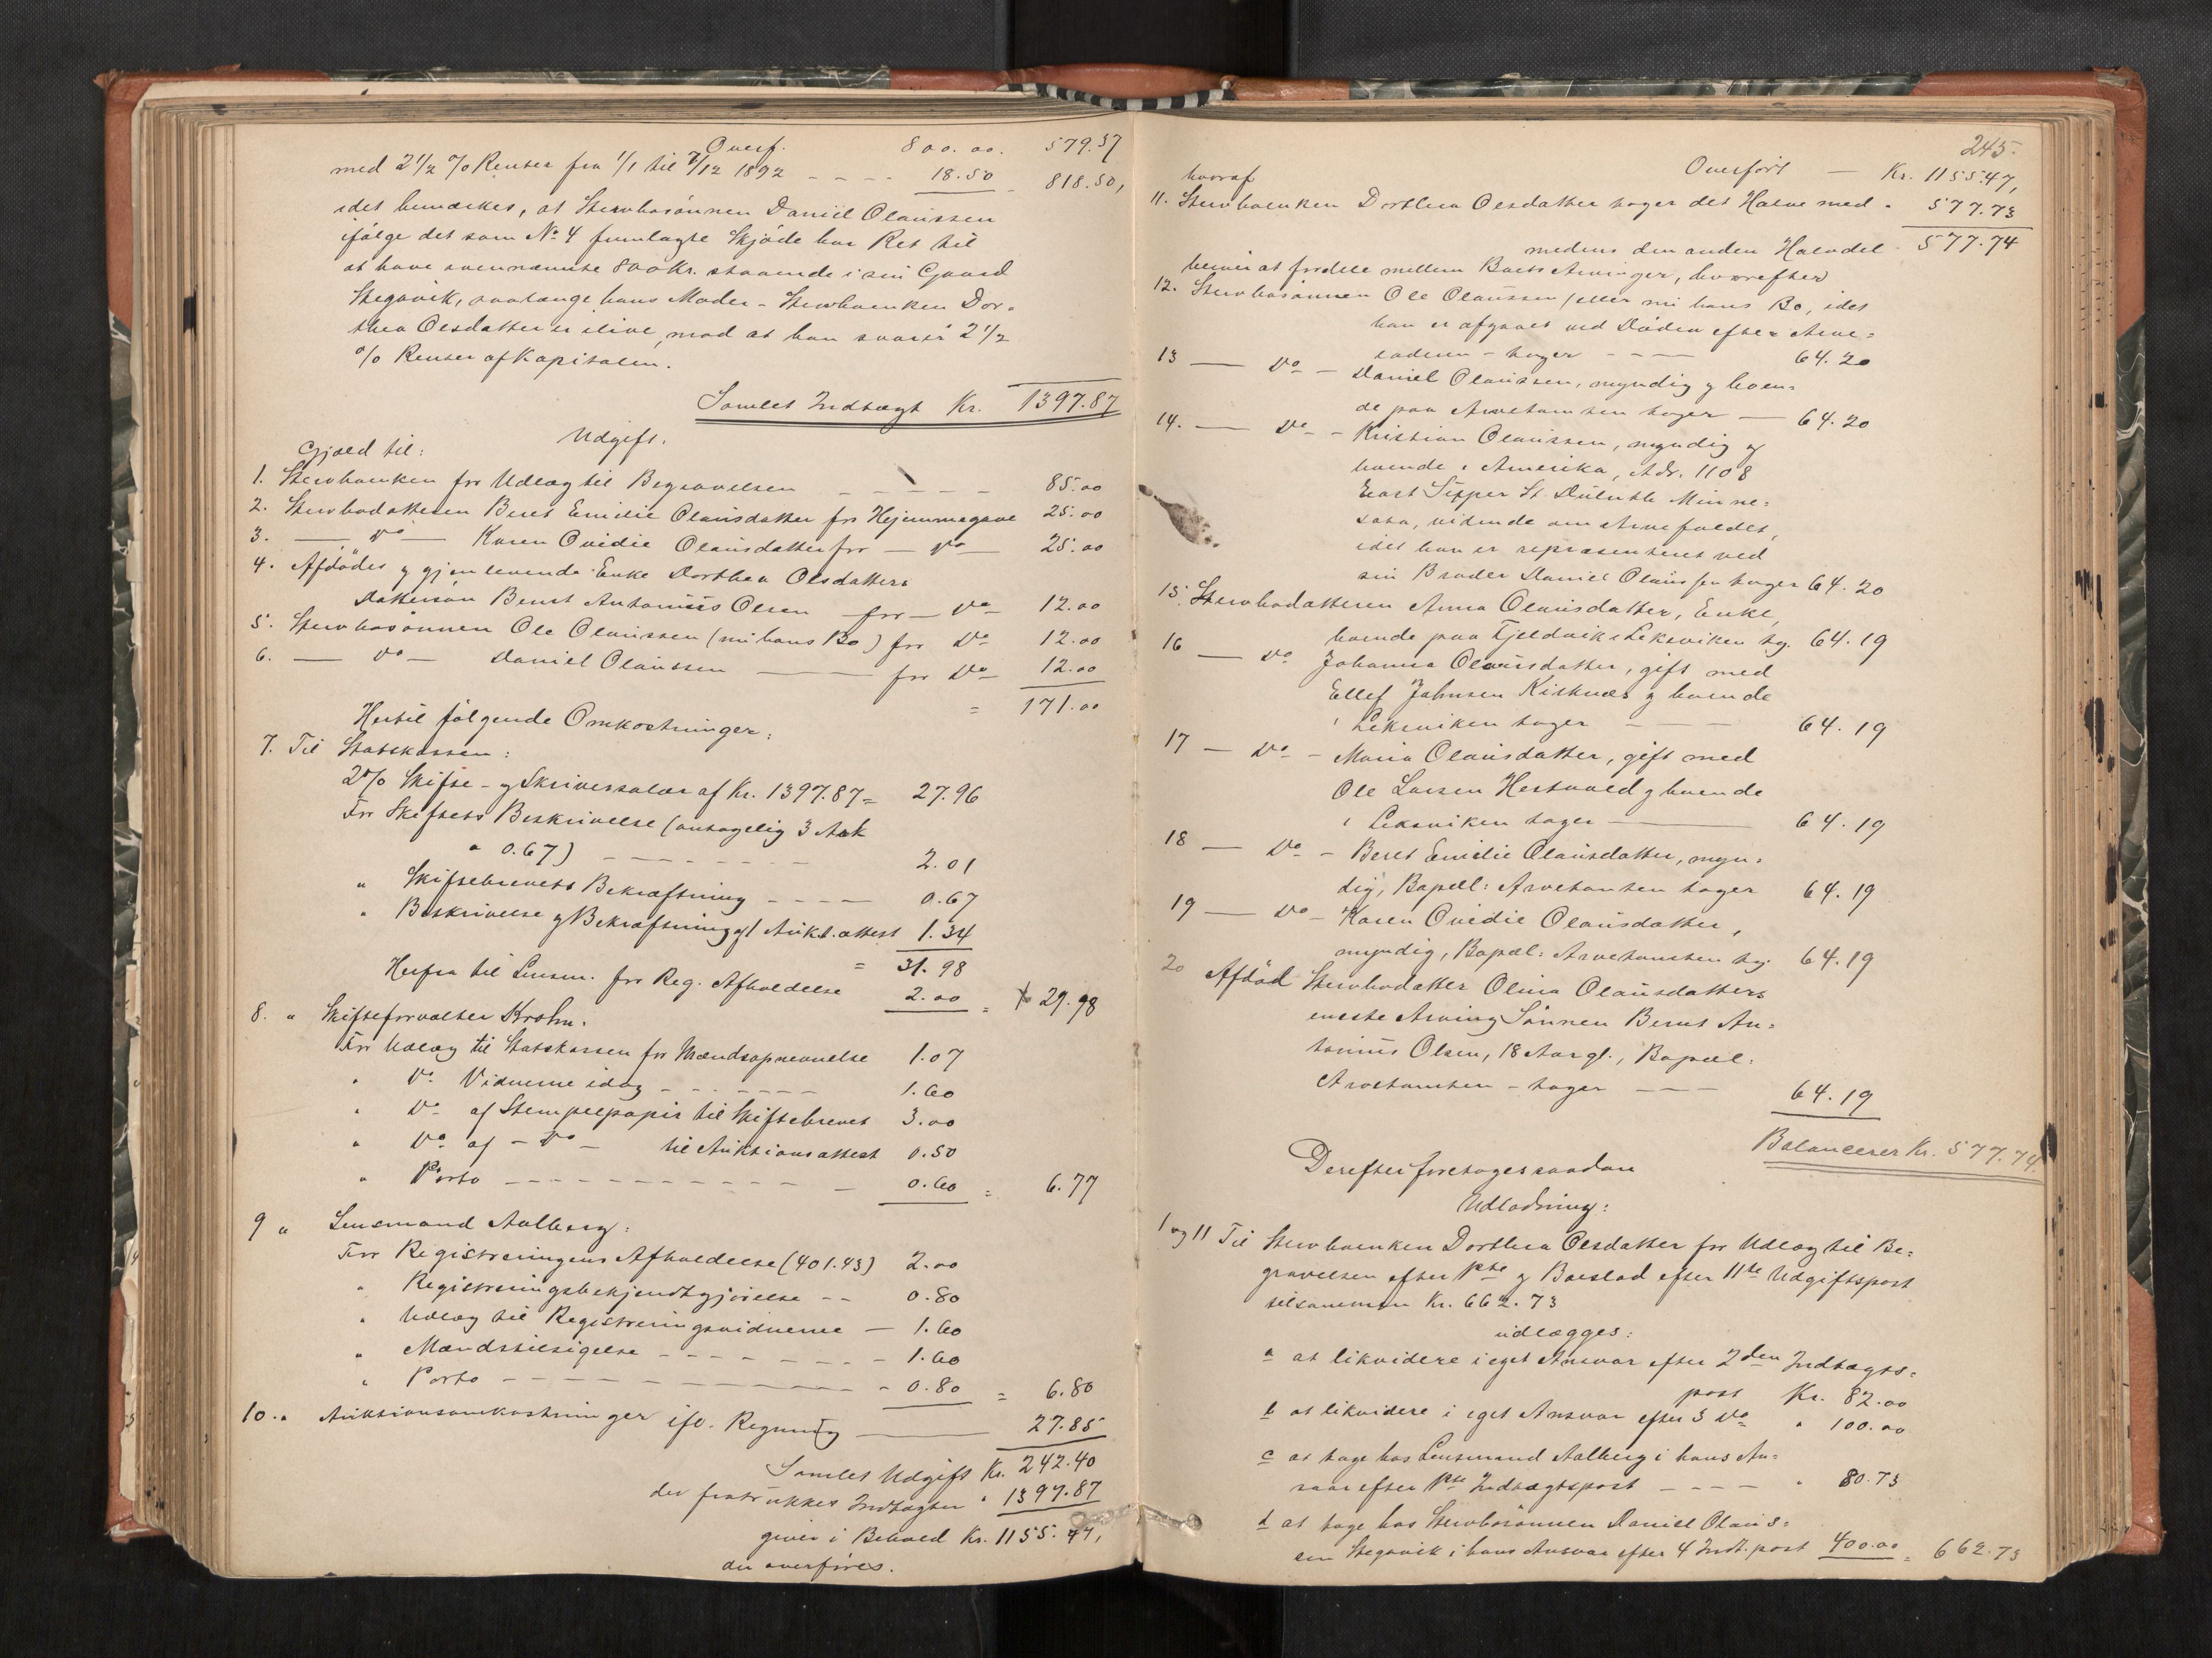 Overf. 800.00. 579.37
med 2 1/2 % Renter fra 1/1 til 7/12 1892 - - - - 18.50 - 818.50,
idet bemærkes, at Stervbosønnen Daniel Olaussen
ifølge det som No 4 fremlagte Skjøde har Ret til
at have ovennævnte 800 Kr. staaende i sin Gaard
Stegavik, saalænge hans Moder - Stervboenken Dor-
thea Olsdatter er ilive, mod at han svarer 2 1/2
% Renter af Kapitalen.
Samlet Indtægt Kr. 1397.87
Udgift.
Gjæld til:
1. Stervboenken for Udlæg til Begravelsen - - - - - 85.00
2. Stervbodatteren Beret Emilie Olausdatter for Hjemmegave 25.00
3. — Do — Karen Ovidie Olausdatter for — Do — 25.00
4. Afdødes og gjenlevende Enke Dorthea Olsdatters
Dattersøn Bernt Antonius Olsen — for — Do — 12.00
5. Stervbosønnen Ole Olaussen (nu hans Bo) for Do 12.00
6. — Do — Daniel Olaussen — for Do 12.00
= 171.00
Hertil følgende Omkostninger:
7. Til Statskassen:
2% Skifte- og Skriversalær af Kr. 1397.87 = 27.96
For Skiftets Beskrivelse (antagelig 3 Ark
a 0.67) - - - - - - - 2.01
" Skiftebrevets Bekræftning - - - - 0.67
" Beskrivelse og Bekræftning af Aukt.attest 1.34
= 31.98
Herfra til Lensm. for Reg. Afholdelse 2.00 = 29.98
8. " Skifteforvalter Krohn.
For Udlæg til Statskassen for Mændsopnevnelse 1.07
" Do Vidnerne idag - - - - - - 1.60
" Do af Stempelpapir til Skiftebrevet 3.00
" Do af - Do - til Auktionsattest 0.50
" Porto - - - - - - - - - - - 0.60 = 6.77
9 " Lensmand Aalberg:
For Registreringens Afholdelse (401.43) 2.00
" Registreringsbekjendtgjørelse - - 0.80
" Udlæg til Registreringsvidnerne — 1.60
" Mændstilsigelse - - - - - - - 1.60
" Porto - - - - - - - - - - 0.80 = 6.80
10. " Auktionsomkostninger ifl. Regning — 27.85
Samlet Udgift Kr. 242.40
der fratrukket Indtægten " 1397.87
giver i Behold Kr. 1155.47,
der overføres.
245.
Overført — Kr. 1155.47,
hvoraf
11. Stervboenken Dorthea Olsdatter tager det Halve med " 577.73
medens den anden Halvdel " 577.74
bliver at fordele mellem Boets Arvinger, hvorefter
12. Stervbosønnen Ole Olaussen (eller nu hans Bo, idet
han er afgaaet ved Døden efter Arve-
laderen - tager - - - - 64.20
13 — Do — Daniel Olaussen, myndig og boen-
de paa Arvetomten tager — 64.20
14. — Do - Kristian Olaussen, myndig og
boende i Amerika, Adr. 1108
East Sipper St. Duluth Minne-
sota, vidende om Arvefaldet,
idet han er repræsenteret ved
sin Broder Daniel Olaussen tager 64.20
15. Stervbodatteren Anna Olausdatter, Enke,
boende paa Fjeldvik i Leksviken tg. 64.19
16 — Do Johanna Olausdatter, gift med
Ellef Johnsen Kirknes og boende
i Leksviken tager - - - 64.19
17 — Do — Maria Olausdatter, gift med
Ole Larsen Hestvold og boende
i Leksviken tager — 64.19
18 — Do — Beret Emilie Olausdatter, myn-
dig, Bopæl: Arvetomten tager 64.19
19 — Do — Karen Ovidie Olausdatter,
myndig, Bopæl: Arvetomten tg. 64.19
20 Afdød Stervbodatter Olina Olausdatters
eneste Arving Sønnen Bernt An-
tonius Olsen, 18 Aar gl., Bopæl:
Arvetomten - tager - - - 64.19
Balancerer Kr. 577.74.
Derefter foretoges saadan
Udlodning:
1 og 11 Til Stervboenken Dorthea Olsdatter for Udlæg til Be-
gravelsen efter 1ste og Boeslod efter 11te Udgiftspost
tilsammen Kr. 662.73
udlægges:
a at likvidere i eget Ansvar efter 2den Indtægts-
post Kr. 82.00
b at likvidere i eget Ansvar efter 3 Do " 100.00
c at tage hos Lensmand Aalberg i hans An-
svar efter 1ste Indtægtspost - - - - " 80.73
d at tage hos Stervbosønnen Daniel Olaus-
sen Stegavik i hans Ansvar efter 4 Indt. post 400.00 = 662.73